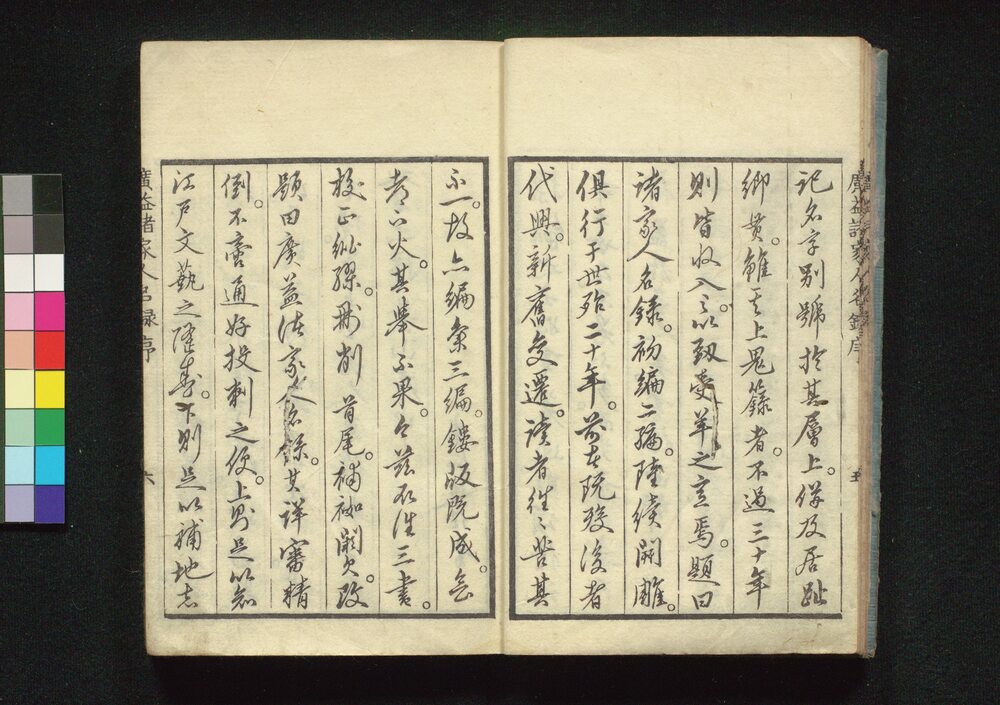 記名字別號於其層上。併及居趾
鄉貫。雖云上鬼籙者。不過三十年
則皆收入之。以 之 焉。題曰
諸家人名錄。初編二編。陸續開雕。
俱行于世。殆二十年。前者既歿後者
代興。新舊變遷。讀者往〻苦其
不一。故亦編集三編。鏤版既成。會
者亦火。其舉不果。今茲取法三書。
校正紕繆。刪削首尾。補衲闕欠。改
題曰廣益諸家人名錄。其詳審精
倒。不啻通好投刺之便。上則足以知
江戸文藝之隆盛。下則足以補地志
廣益諸家人名錄序
五
廣益諸家人名録序
六